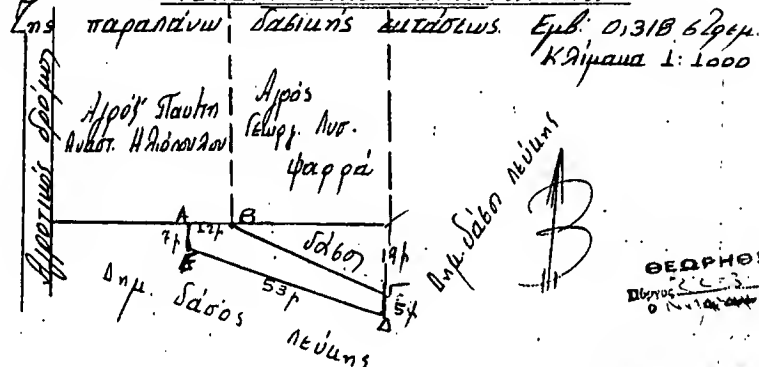 της παραπάνω δασικής εκτάσεως. Εμβ: 0,318 στρεμ.
Κλίμακα 1:1000
Αγροτικός δρόμος
Αγρός Παντη
Αναστ. Ηλιόπουλου
Αγρός
Γεωργ. Λυσ.
Φαρρά
Α 12μ Β
7μ
Ε
δάσος
19μ
Γ
5μ
Δ
53μ
Δημ. δάσος Λεύκης
Δημ. δάσος Λεύκης
Β
ΘΕΩΡΗΘ
Πύργος
Ο